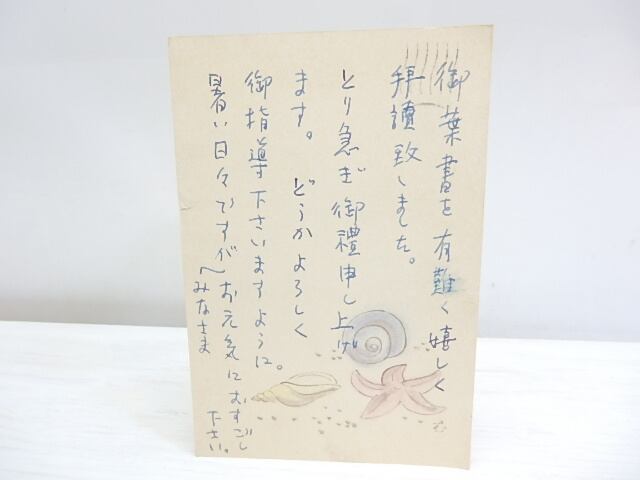 御葉書を有難く嬉しく
拝讀致しました。
とり急ぎ御禮申し上げ
ます。 どうかよろしく
御指導下さいますように。
暑い日々ですがお元気におすごし
下さい。
みなさま